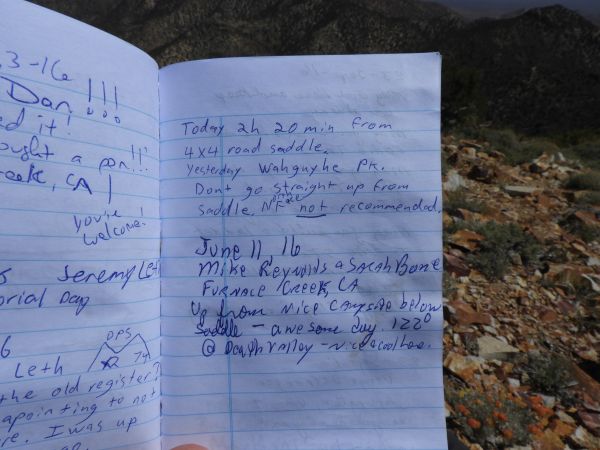 3-16
Dan!!!
ed it!
ought a pen!!
Creek, CA
you're
welcome!
Jeremy Leth
orial Day
6
DPS
Leth
the old register?
apointing to not
re. I was up
Today 2h 20 min from
4x4 road saddle.
Yesterday Wahguyhe Pk.
Dont go straight up from
saddle, North Face not recommended.
June 11 16
Mike Reynolds & Sarah Bone
Furnace Creek, CA
Up from nice campsite below
saddle - awesome day. 122°
@ Death Valley - nice & cool here.